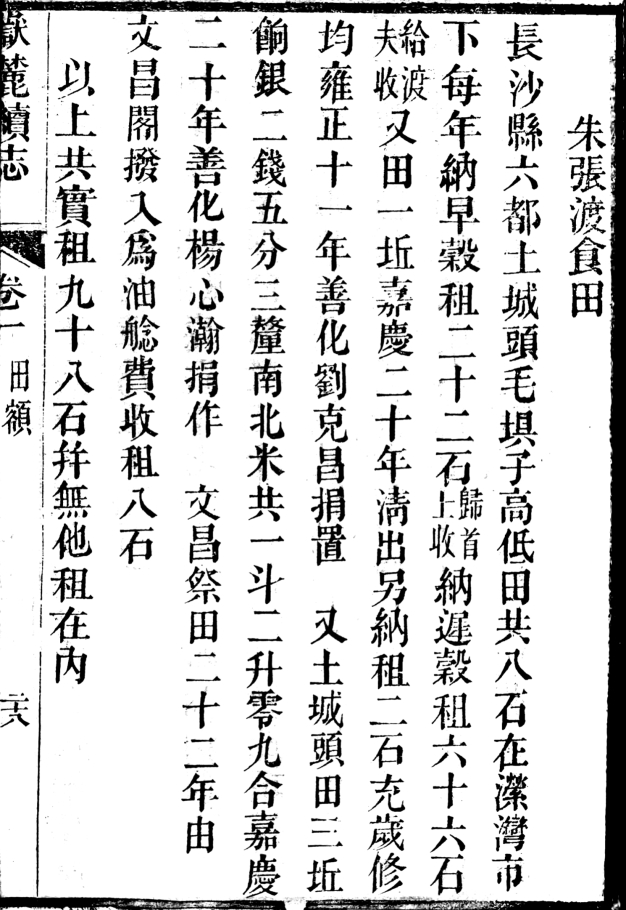 朱張渡食田
長沙縣六都土城頭毛塤子高低田共八石在濚灣市
下每年納早穀租二十二石歸首上收納遲穀租六十六石
給渡夫收又田一坵嘉慶二十年清出另納租二石充歲修
均雍正十一年善化劉克昌捐置　又土城頭田三坵
餉銀二錢五分三釐南北米共一斗二升零九合嘉慶
二十年善化楊心瀚捐作　文昌祭田二十二年由
文昌閣撥入為油艌費收租八石
以上共實租九十八石并無他租在內
嶽麓續志　卷一　田額　二十六